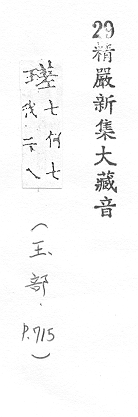 29精嚴新集大藏音
七何七
(玉部.P.715)